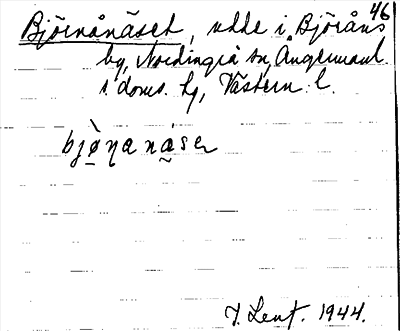 46
Björnånäset, udde i Björåns
by, Nordingrå sn, Ångermanl.
s. doms. hg, Västern. l.
bjò̱ɳanáseɳ
J. Lent. 1944.